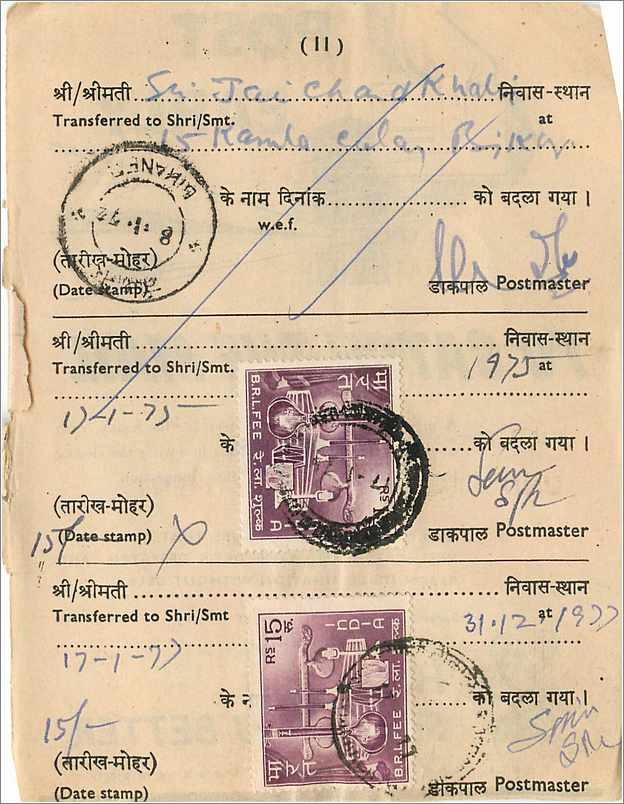 (11)
श्री/श्रीमती Sri Jai Chand निवास-स्थान
Transferred to Shri/Smt. at
15 Kamla Colony
BIKANER
8 · 1 · 72
के नाम दिनांक को बदला गया।
w.e.f.
(तारीख-मोहर)
(Date stamp) डाकपाल Postmaster
श्री/श्रीमती निवास-स्थान
Transferred to Shri/Smt. 1975 at
17-1-75
भारत
B.R.L.FEE रे.ला. शुल्क
RS
के को बदला गया।
(तारीख-मोहर)
15/- (Date stamp) X डाकपाल Postmaster
श्री/श्रीमती निवास-स्थान
Transferred to Shri/Smt 31.12.1977 at
17-1-77
RS 15 रु.
INDIA
भारत
B.R.L.FEE रे.ला. शुल्क
के को बदला गया।
15/-
(तारीख-मोहर)
(Date stamp) डाकपाल Postmaster